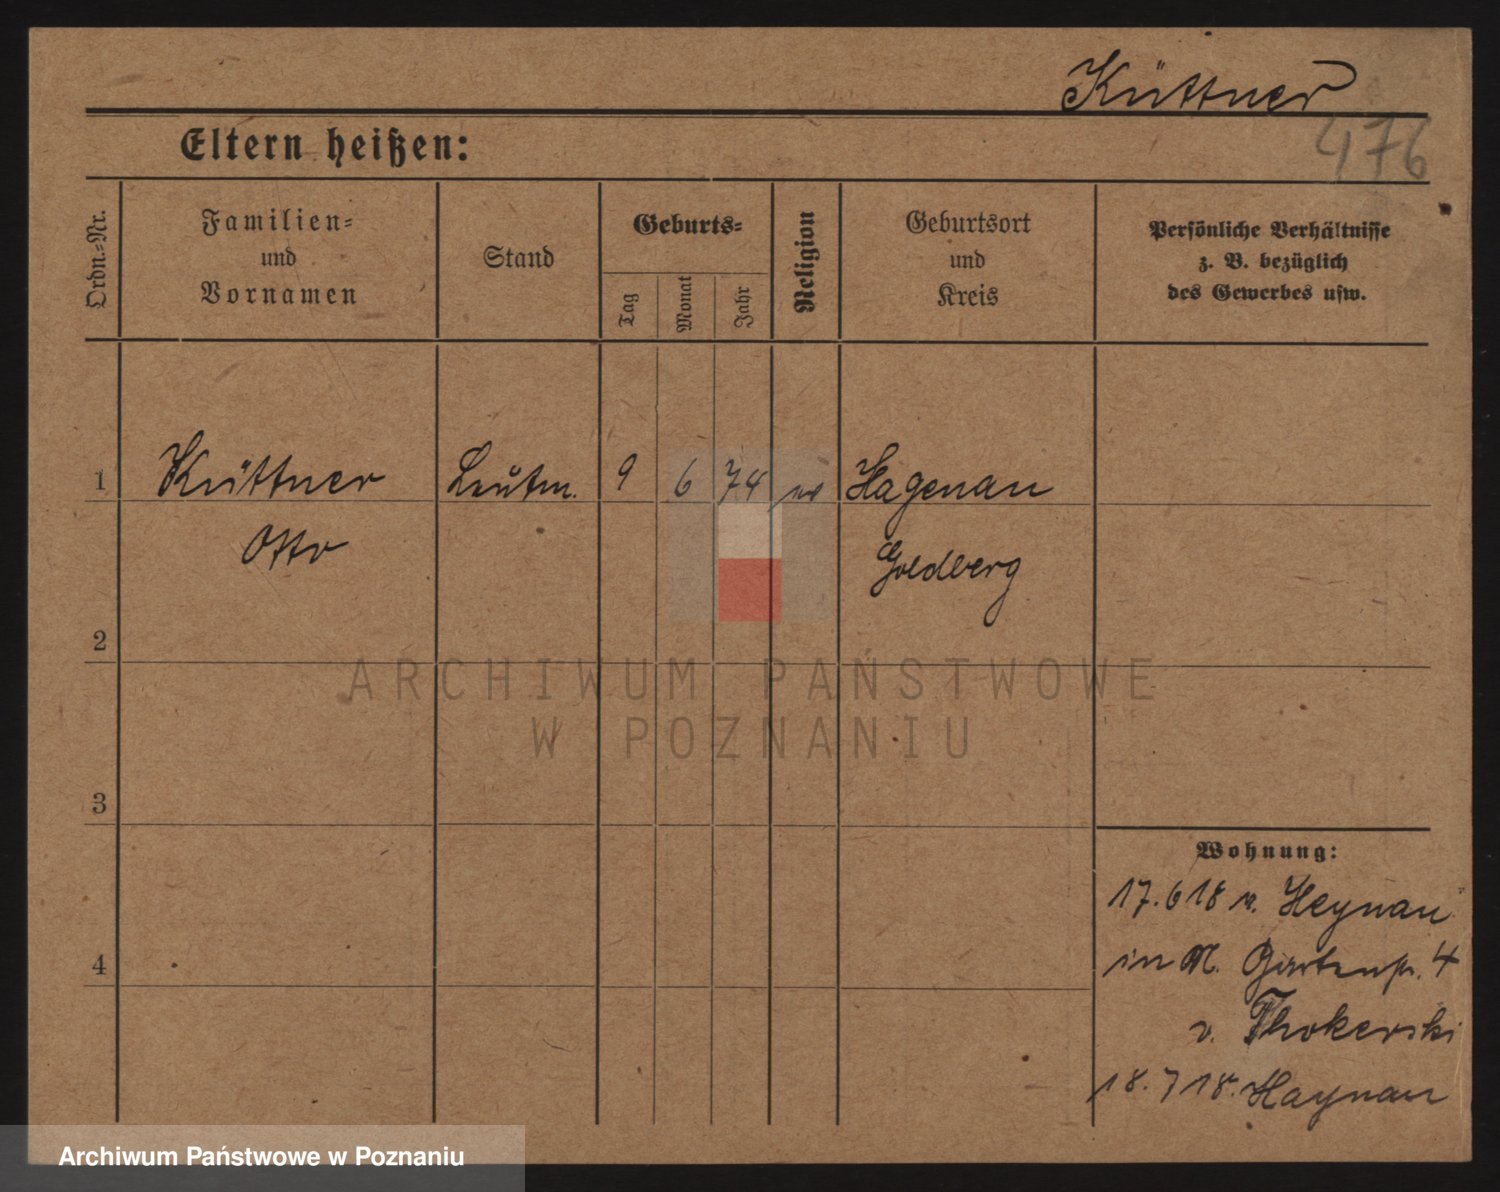 Küttner
476
Eltern heißen:
Ordn.-Nr.
Familien-
und
Vornamen
Stand
Geburts-
Tag
Monat
Jahr
Religion
Geburtsort
und
Kreis
Persönliche Verhältnisse
z. B. bezüglich
des Gewerbes usw.
1 Küttner Leutn. 9 6 74 ev Hagenau
Otto Goldberg
2
3
4
Wohnung:
17.6 18 v. Heynau
in M. Gartenstr. 4
v. Thokerski
18. 7 18. Haynau
ARCHIWUM PAŃSTWOWE
W POZNANIU
Archiwum Państwowe w Poznaniu